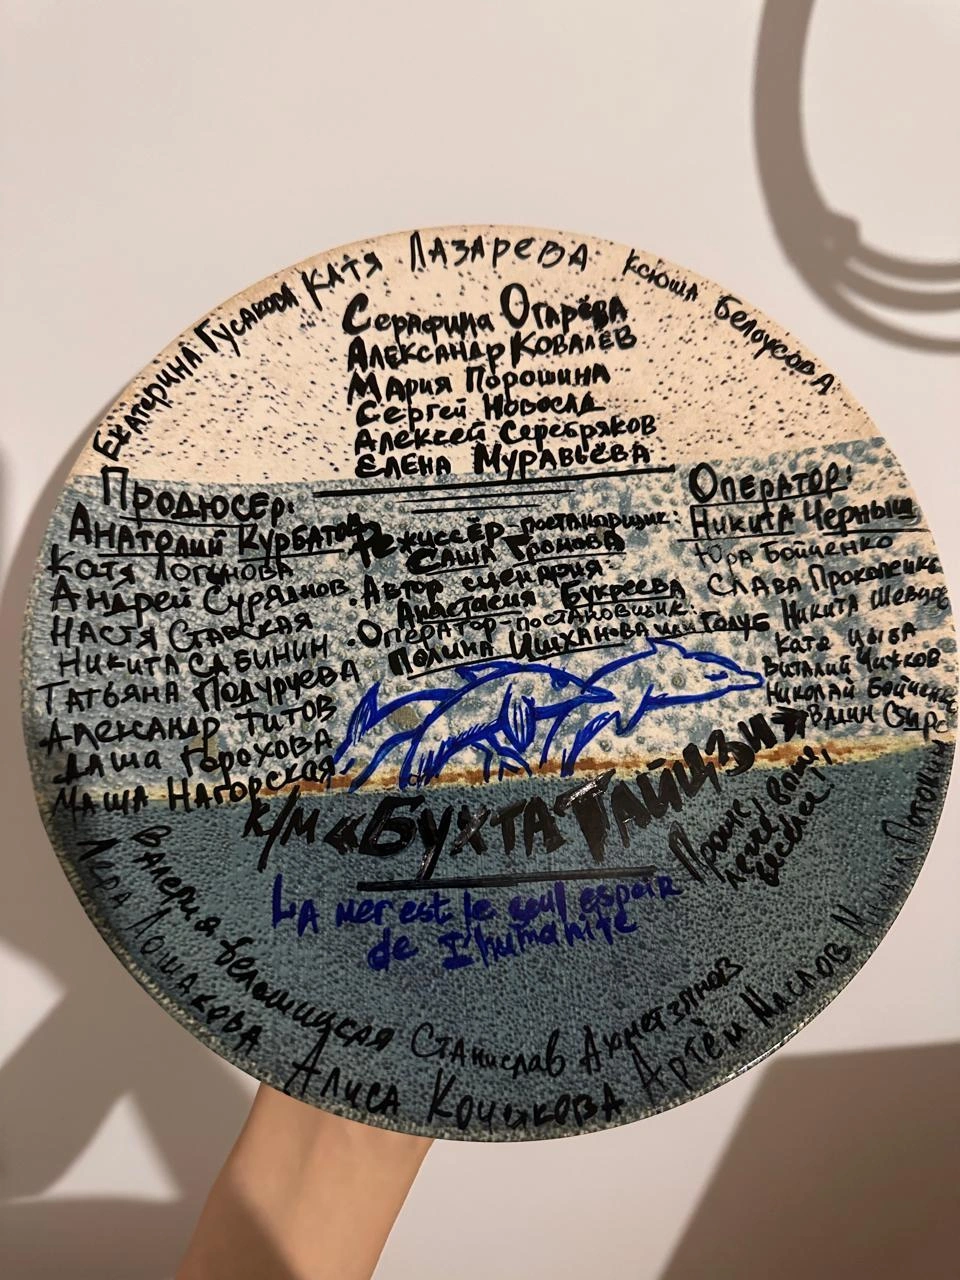 Екатерина Гусакова
Катя Лазарева
Ксюша Белоусова
Серафима Огарёва
Александр Ковалёв
Мария Порошина
Сергей Новосад
Алексей Серебряков
Елена Муравьёва
Продюсер:
Анатолий Курбатов
Катя Логунова
Андрей Суряднов
Настя Ставская
Никита Сабинин
Татьяна Подурчева
Александр Титов
Даша Горохова
Маша Нагорская
Режиссёр-постановщик:
Саша Громова
Автор сценария:
Анастасия Букреева
Оператор-постановщик:
Полина Ишханова или Голуб
Оператор:
Никита Черныш
Юра Бойченко
Слава Прокопенко
Никита Шевцов
Катя Цыба
Виталий Чижков
Николай Бойченко
к/м «Бухта Тайцзи»
La mer est le seul espoir
de l'humanité
Валерия Беломицкая
Лера Лошакова
Станислав Ахметзянов
Алиса Кочикова
Артём Маслов